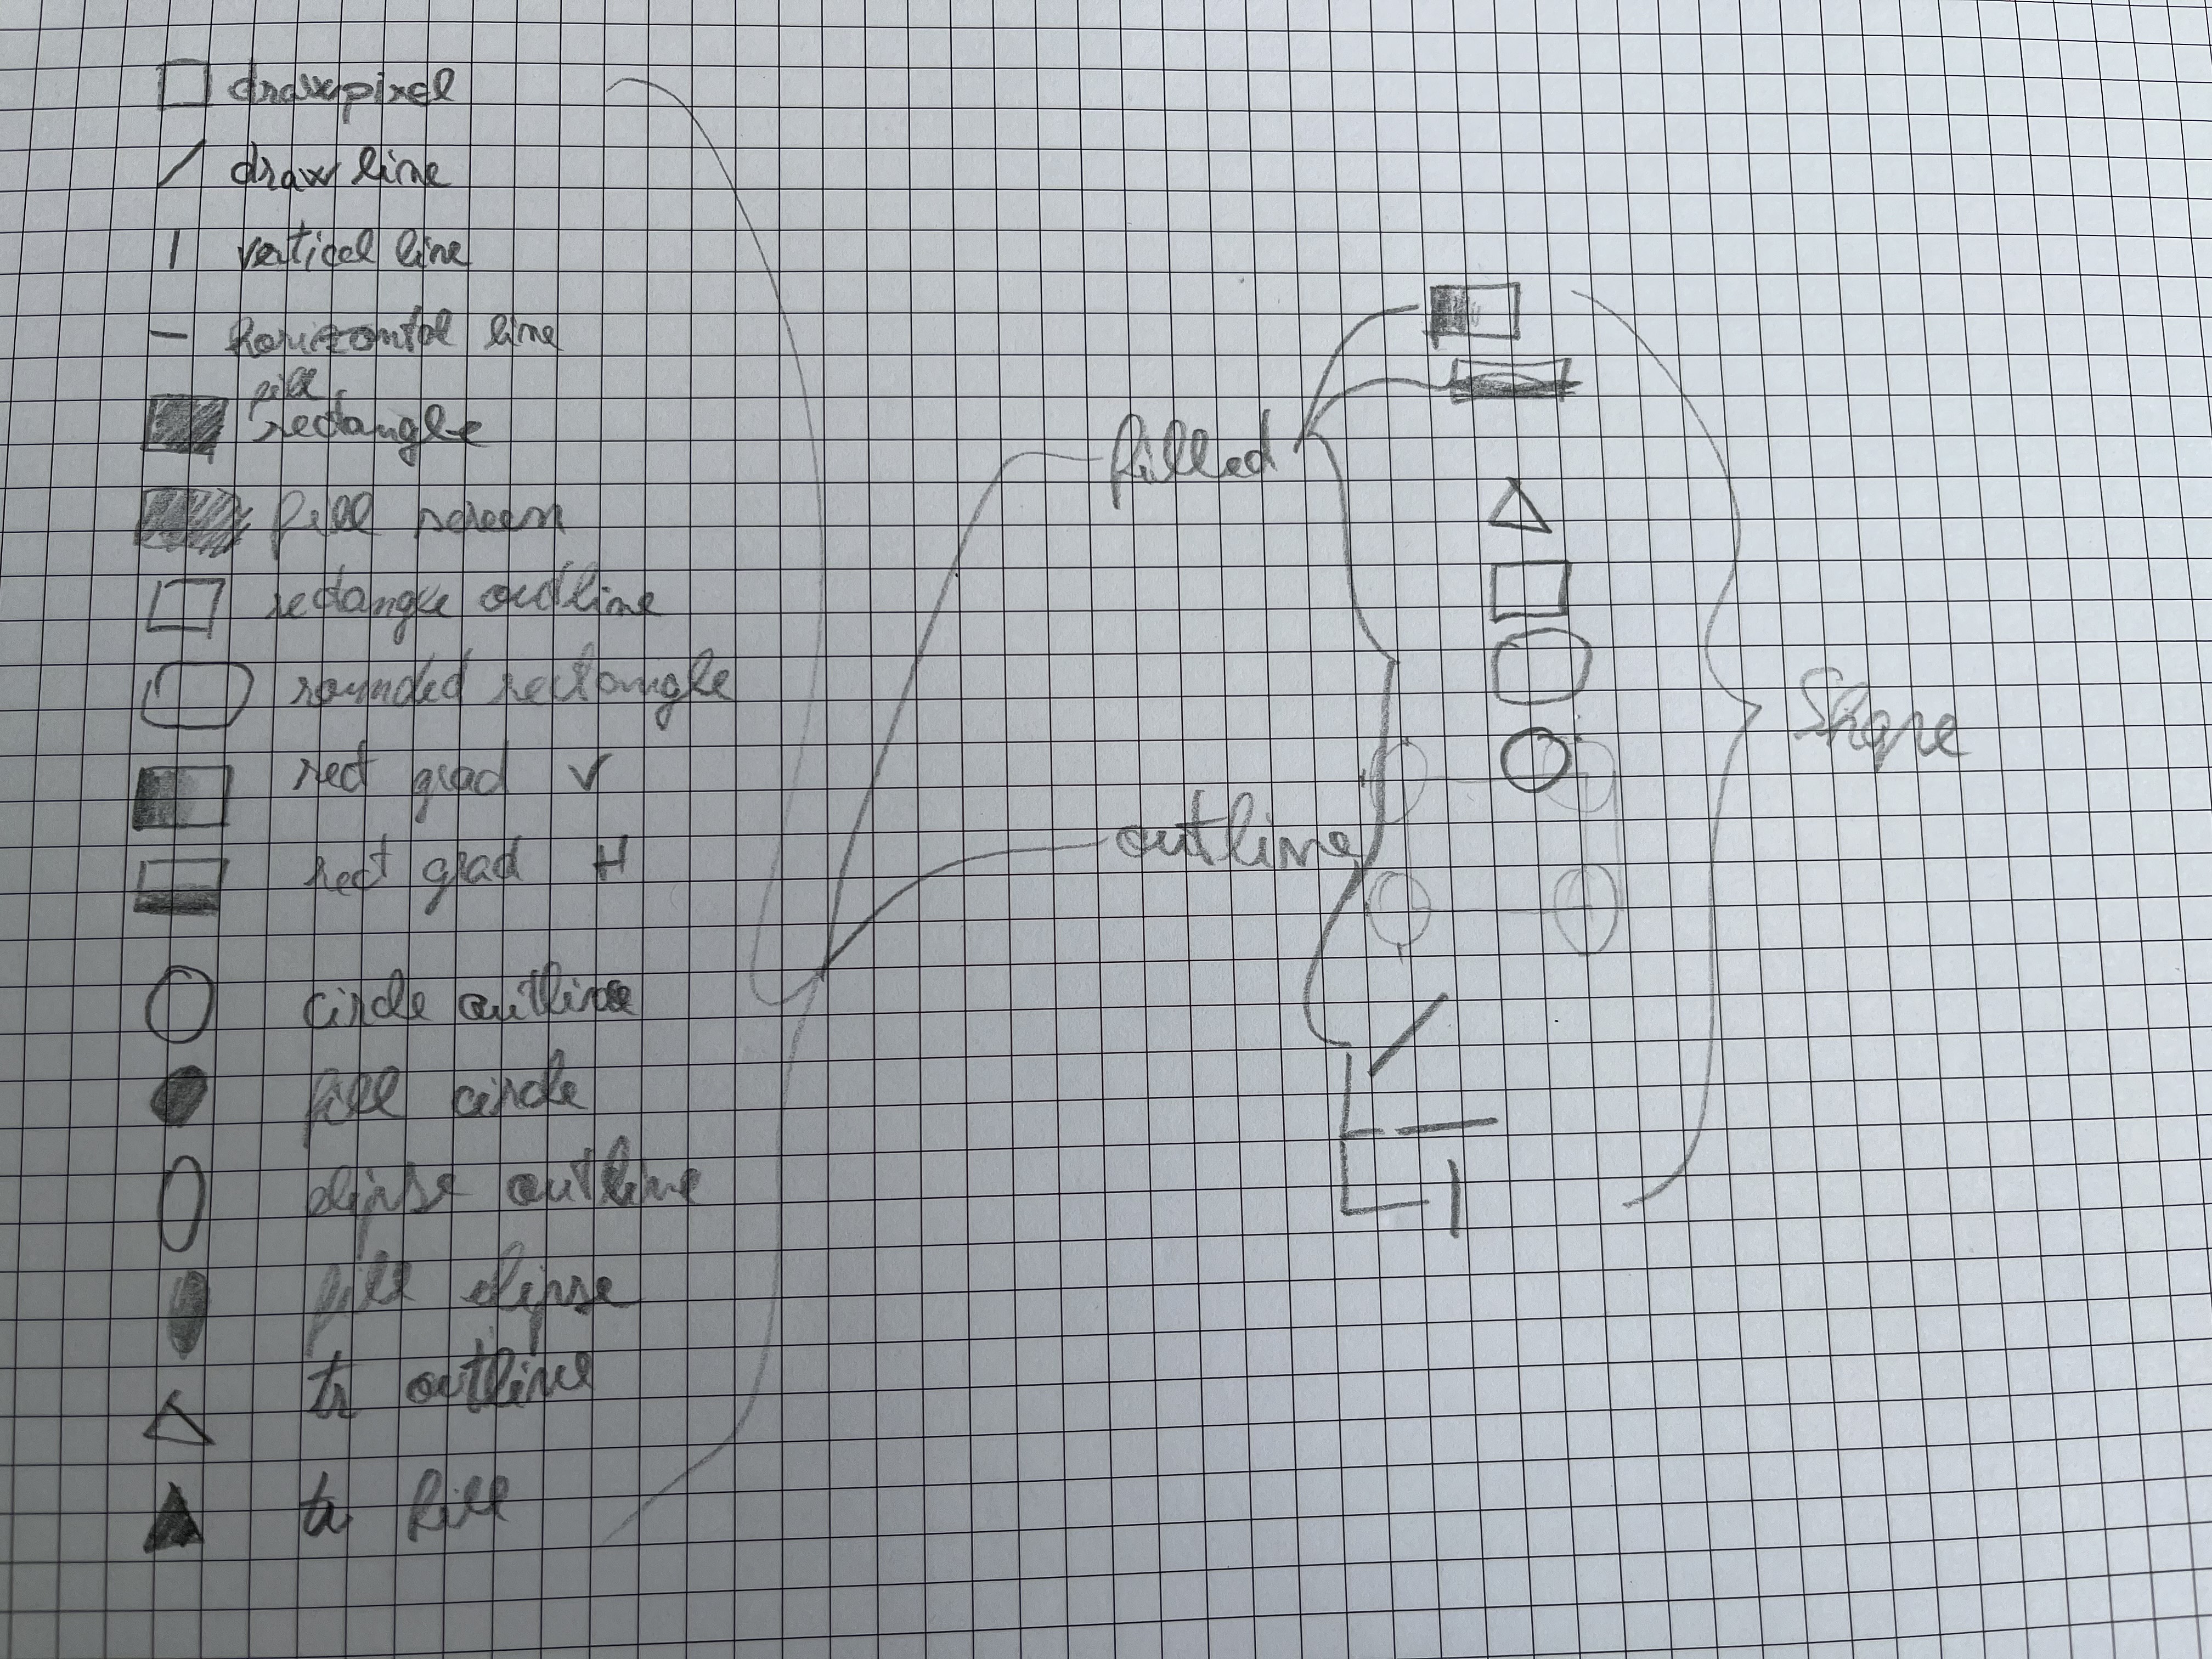 drawpixel
draw line
vertical line
horizontal line
fill
rectangle
fill screen
rectangle outline
rounded rectangle
rect grad V
rect grad H
circle outline
fill circle
elipse outline
fill elipse
tr outline
tr fill
filled
outline
Shape